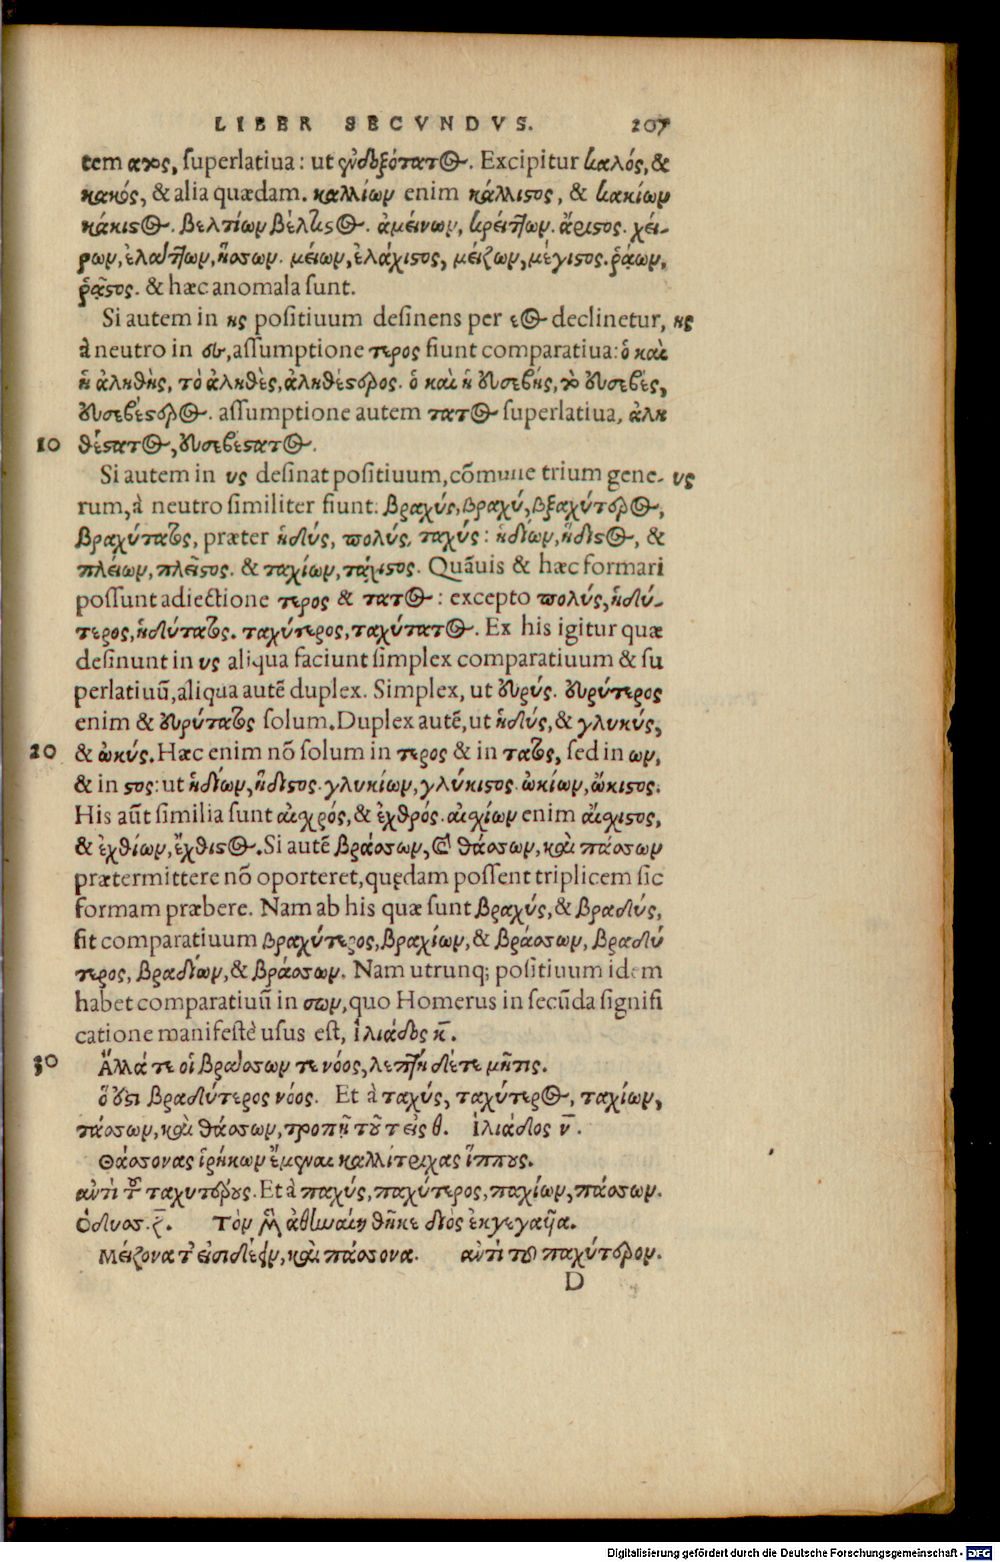 LIBER SECVNDVS. 207
tem ατος, superlatiua: ut ἐνδοξότατος. Excipitur καλός, &
κακός, & alia quædam. καλλίων enim κάλλιστος, & κακίων
κάκιστος. βελτίων βέλτιστος. ἀμείνων, κρείττων. ἄριστος. χεί-
ρων, ἐλάττων, ἥσσων. μείων, ἐλάχιστος, μείζων, μέγιστος. ῥᾴων,
ῥᾷστος. & hæc anomala sunt.
Si autem in ης positiuum desinens per εος declinetur, ης
à neutro in ες, assumptione τερος fiunt comparatiua: ὁ καὶ
ἡ ἀληθὴς, τὸ ἀληθὲς, ἀληθέστερος. ὁ καὶ ἡ εὐσεβής, τὸ εὐσεβές,
εὐσεβέστερος. assumptione autem τατος superlatiua, ἀλη
10 θέστατος, εὐσεβέστατος.
Si autem in υς desinat positiuum, cõmune trium gene- υς
rum, à neutro similiter fiunt: βραχύς, βραχύ, βραχύτερος,
βραχύτατος, præter ἡδύς, πολύς, ταχύς: ἡδίων, ἥδιστος, &
πλείων, πλεῖστος. & ταχίων, τάχιστος. Quãuis & hæc formari
possunt adiectione τερος & τατος: excepto πολύς, ἡδύ-
τερος, ἡδύτατος. ταχύτερος, ταχύτατος. Ex his igitur quæ
desinunt in υς aliqua faciunt simplex comparatiuum & su
perlatiuũ, aliqua autẽ duplex. Simplex, ut εὐρύς. εὐρύτερος
enim & εὐρύτατος solum. Duplex autẽ, ut ἡδύς, & γλυκύς,
20 & ὠκύς. Hæc enim nõ solum in τερος & in τατος, sed in ων,
& in στος: ut ἡδίων, ἥδιστος. γλυκίων, γλύκιστος. ὠκίων, ὤκιστος.
His aũt similia sunt αἰσχρός, & ἐχθρός. αἰσχίων enim αἴσχιστος,
& ἐχθίων, ἔχθιστος. Si autẽ βράσσων, & θάσσων, καὶ πάσσων
prætermittere nõ oporteret, quędam possent triplicem sic
formam præbere. Nam ab his quæ sunt βραχύς, & βραδύς,
fit comparatiuum βραχύτερος, βραχίων, & βράσσων, βραδύ
τερος, βραδίων, & βράσσων. Nam utrunq; positiuum idem
habet comparatiuũ in σων, quo Homerus in secũda signifi
catione manifestè usus est, ἰλιάδος κ̄.
30 Ἀλλά τε οἱ βράσσων τε νόος, λεπτὴ δέ τε μῆτις.
ὅ ἐστι βραδύτερος νόος. Et à ταχύς, ταχύτερος, ταχίων,
τάσσων, καὶ θάσσων, τροπῇ τοῦ τ εἰς θ. Ἰλιάδος ν̄.
Θάσσονας ἰρήκων ἔμεναι καλλίτριχας ἵππους.
αντὶ τοῦ ταχυτέρους. Et à παχύς, παχύτερος, παχίων, πάσσων.
Ὀδυσσ. ζ̄. Τὸν μὲν ἀθηναίη θῆκε διὸς ἐκγεγαῦα.
Μείζονα τ' εἰσιδέειν, καὶ πάσσονα. αντὶ τοῦ παχύτερον.
D
Digitalisierung gefördert durch die Deutsche Forschungsgemeinschaft - DFG